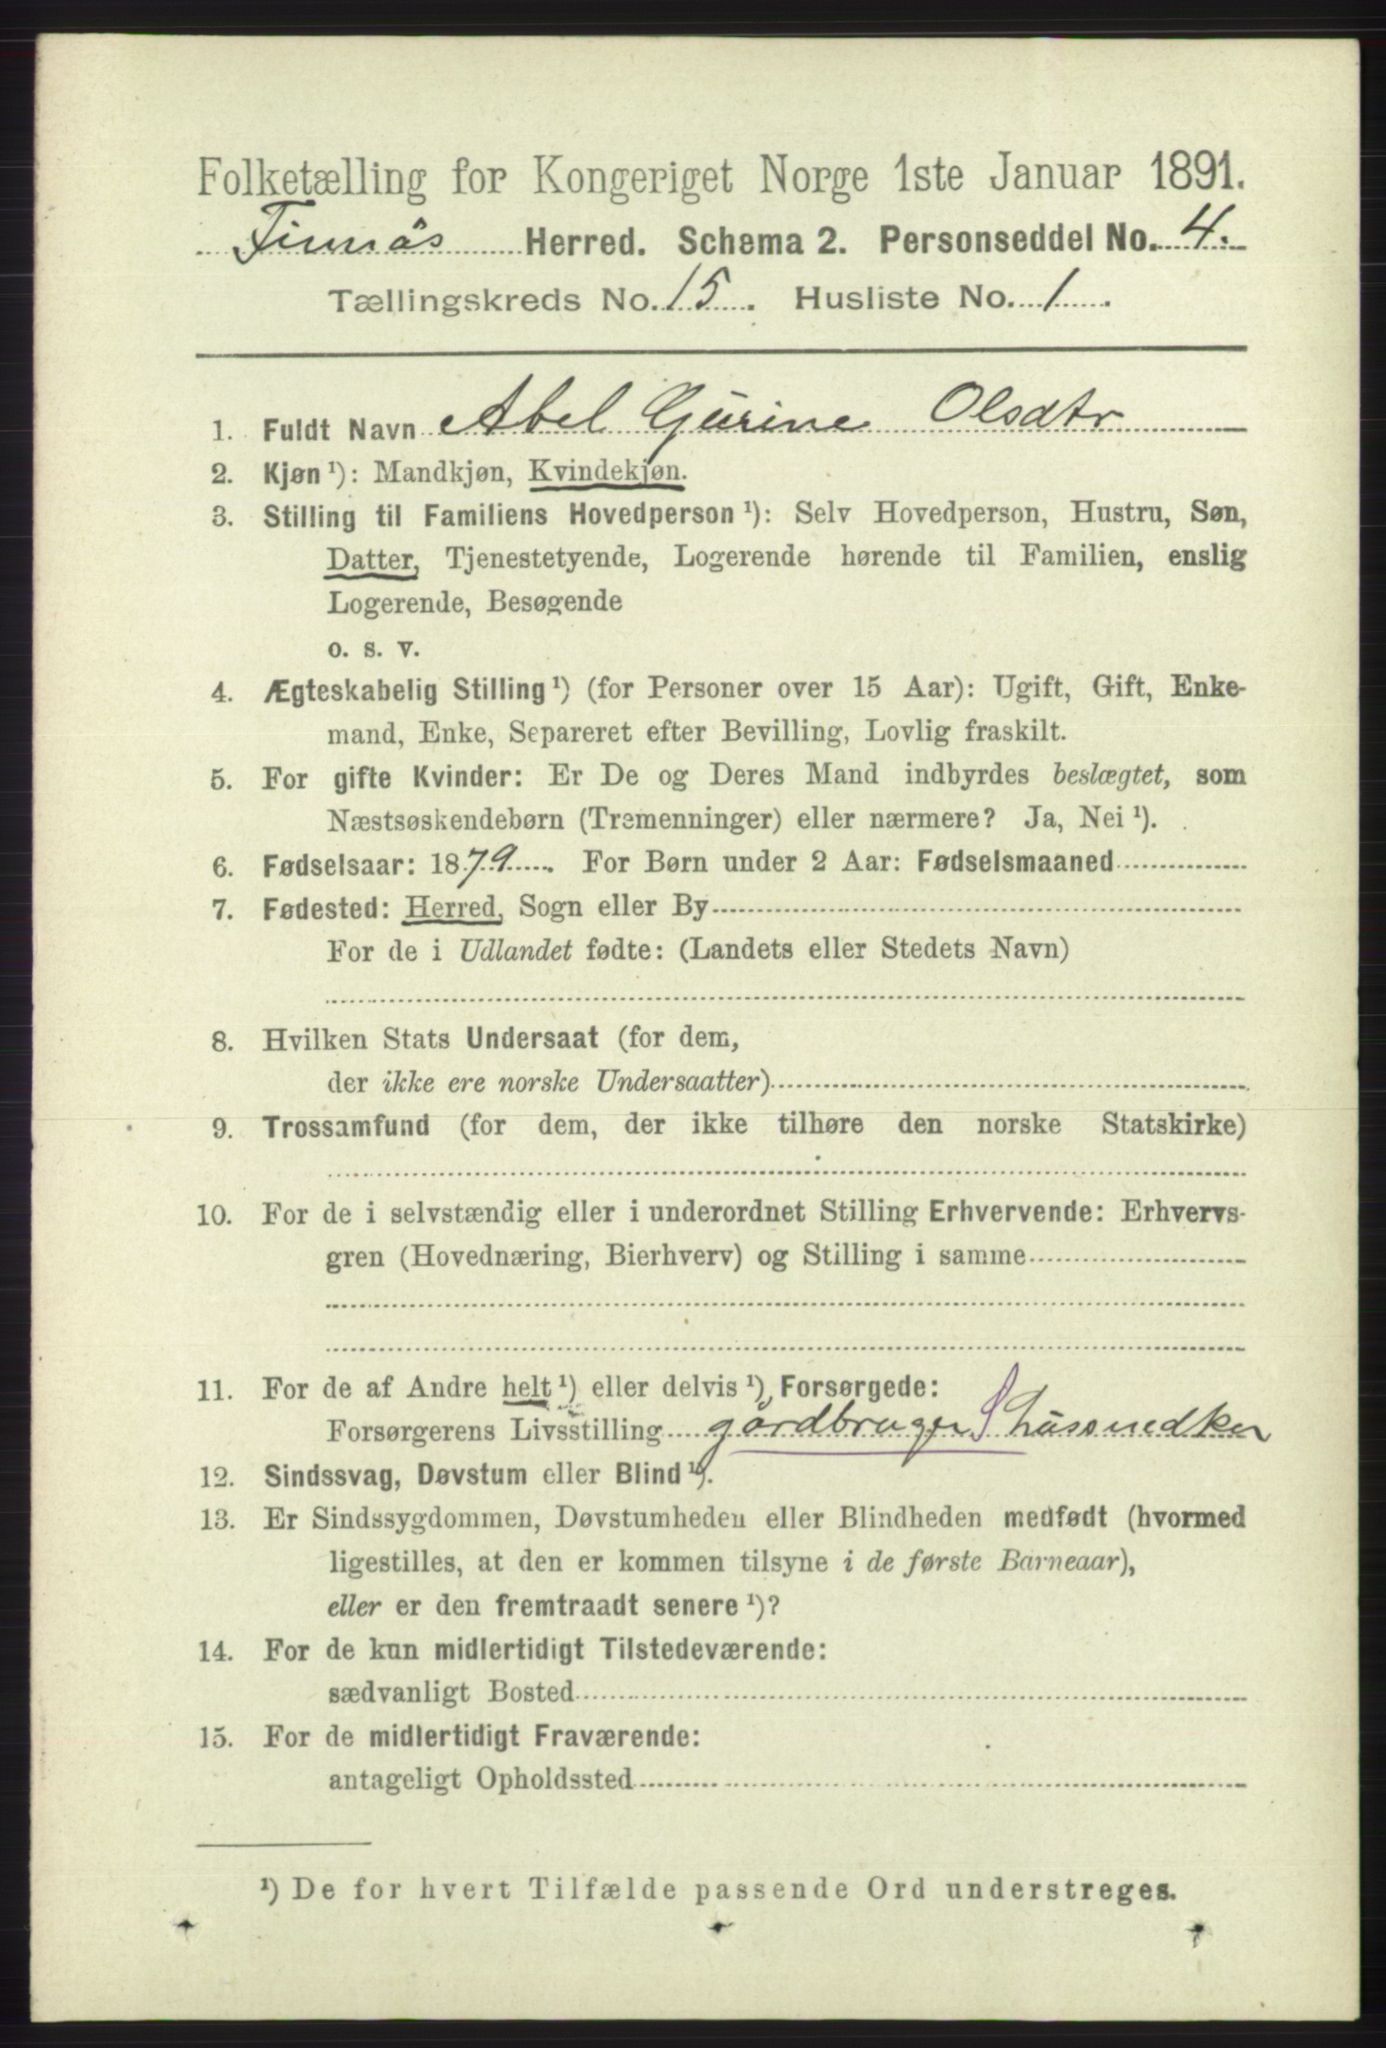 Folketælling for Kongeriget Norge 1ste Januar 1891.
Finnås Herred. Schema 2. Personseddel No. 4.
Tællingskreds No. 15. Husliste No. 1.
1. Fuldt Navn Abel Gurine Olsdtr
2. Kjøn ¹): Mandkjøn, Kvindekjøn.
3. Stilling til Familiens Hovedperson ¹): Selv Hovedperson, Hustru, Søn,
Datter, Tjenestetyende, Logerende hørende til Familien, enslig
Logerende, Besøgende
o. s. v.
4. Ægteskabelig Stilling ¹) (for Personer over 15 Aar): Ugift, Gift, Enke-
mand, Enke, Separeret efter Bevilling, Lovlig fraskilt.
5. For gifte Kvinder: Er De og Deres Mand indbyrdes beslægtet, som
Næstsøskendebørn (Tremenninger) eller nærmere? Ja, Nei ¹).
6. Fødselsaar: 1879. For Børn under 2 Aar: Fødselsmaaned
7. Fødested: Herred, Sogn eller By
For de i Udlandet fødte: (Landets eller Stedets Navn)
8. Hvilken Stats Undersaat (for dem,
der ikke ere norske Undersaatter)
9. Trossamfund (for dem, der ikke tilhøre den norske Statskirke)
10. For de i selvstændig eller i underordnet Stilling Erhvervende: Erhvervs-
gren (Hovednæring, Bierhverv) og Stilling i samme
11. For de af Andre helt ¹) eller delvis ¹), Forsørgede:
Forsørgerens Livsstilling gårdbruger S hussnedker
12. Sindssvag, Døvstum eller Blind ¹).
13. Er Sindssygdommen, Døvstumheden eller Blindheden medfødt (hvormed
ligestilles, at den er kommen tilsyne i de første Barneaar),
eller er den fremtraadt senere ¹)?
14. For de kun midlertidigt Tilstedeværende:
sædvanligt Bosted
15. For de midlertidigt Fraværende:
antageligt Opholdssted
¹) De for hvert Tilfælde passende Ord understreges.